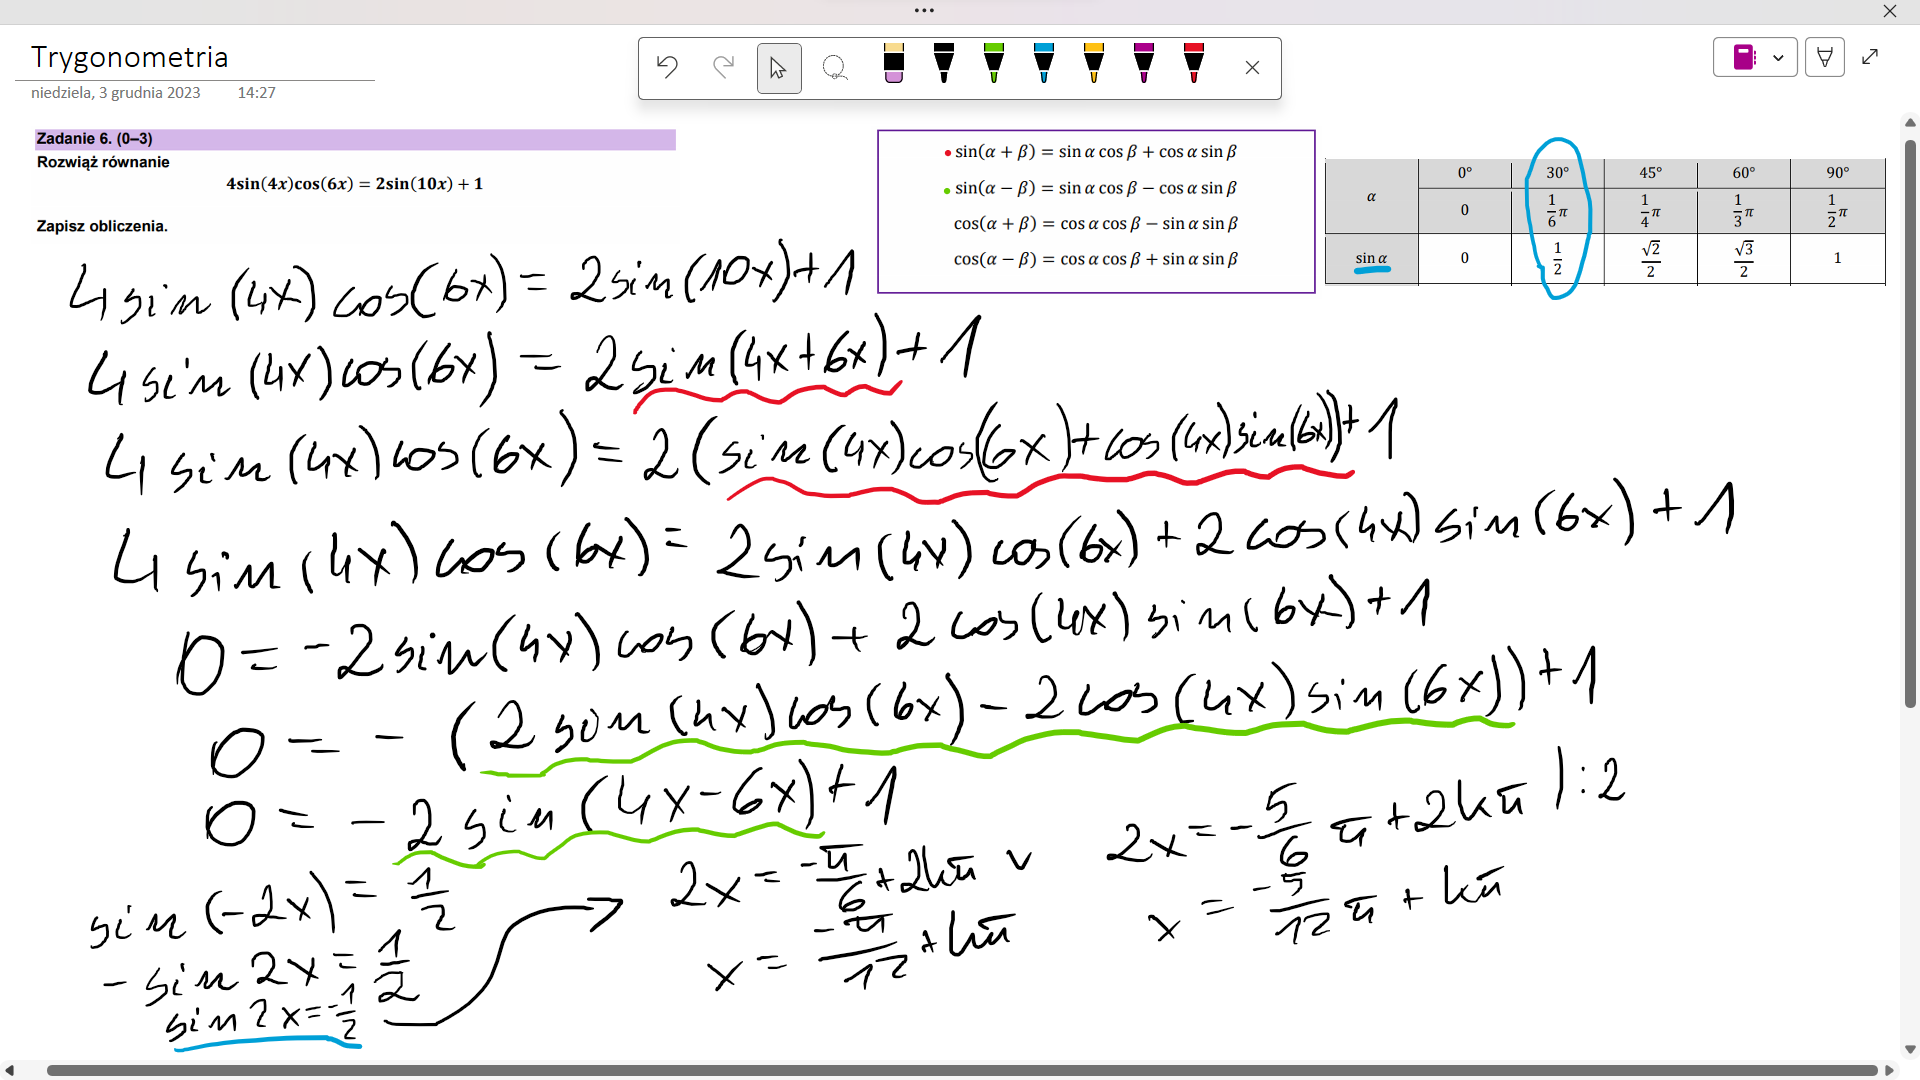 Trygonometria
niedziela, 3 grudnia 2023 14:27
Zadanie 6. (0–3)
Rozwiąż równanie
4sin(4x)cos(6x) = 2sin(10x) + 1
Zapisz obliczenia.
sin(α + β) = sin α cos β + cos α sin β
sin(α − β) = sin α cos β − cos α sin β
cos(α + β) = cos α cos β − sin α sin β
cos(α − β) = cos α cos β + sin α sin β
α 0° 30° 45° 60° 90°
0 1/6 π 1/4 π 1/3 π 1/2 π
sin α 0 1/2 √2/2 √3/2 1
4 sin (4x) cos(6x) = 2sin(10x)+1
4 sin (4x) cos(6x) = 2sin(4x+6x)+1
4 sin (4x) cos(6x) = 2(sin(4x)cos(6x)+cos(4x)sin(6x))+1
4 sin(4x) cos(6x) = 2sin(4x) cos(6x)+2cos(4x) sin(6x)+1
0 = -2sin(4x) cos(6x)+2cos(4x) sin(6x)+1
0 = -(2sin(4x)cos(6x)-2cos(4x) sin(6x))+1
0 = -2sin(4x-6x)+1
sin(-2x) = 1/2
-sin 2x = 1/2
sin 2x = -1/2
2x = -π/6 + 2kπ ∨
x = -π/12 + kπ
2x = -5/6 π + 2kπ |:2
x = -5/12 π + kπ